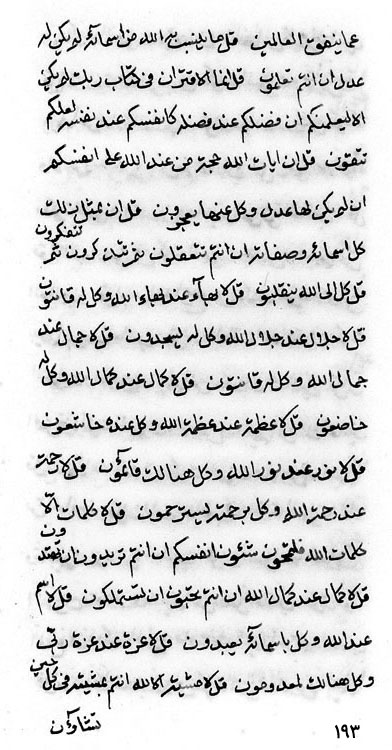 عما ينفق العالمين قل ما ينسب به الله من اسمائه لم يكن له
عدل ان انتم تعلمون قل انما الاقتران فى كتاب ربك لم يكن
الا ليعلمنكم ان فضلكم عند فضله كانفسكم عند نفسه لعلكم
تتقون قل ان ايات الله حجة من عند الله على انفسكم
ان لم يكن لها عدل وكل عنها يعجزون قل ان بمثل ذلك
كل اسمائه وصفاته ان انتم تتعقلون ثم تتذكرون ثم تتفكرون
قل كل الى الله ينقلبون قل لا بهاء عند بهاء الله وكل له قانتون
قل لا جلال عند جلال الله وكل له يسجدون قل لا جمال عند
جمال الله وكل له قانتون قل لا كمال عند كمال الله وكل له
خاضعون قل لا عظمة عند عظمة الله وكل عنده خاشعون
قل لا نور عند نور الله وكل هنالك قائمون قل لا رحمة
عند رحمة الله وكل برحمته يسترحمون قل لا كلمات الا
كلمات الله شئون انفسكم ان انتم تريدون ان
قل لا كمال عند كمال الله ان انتم تحبون ان تستملكون قل لا اسم
عند الله وكل باسمائه يعبدون قل لا عزة عند عزة ربى
وكل هنالك قل لا مشية الا لله انتم بمشيته فى كل
تشاؤن
١٩٣